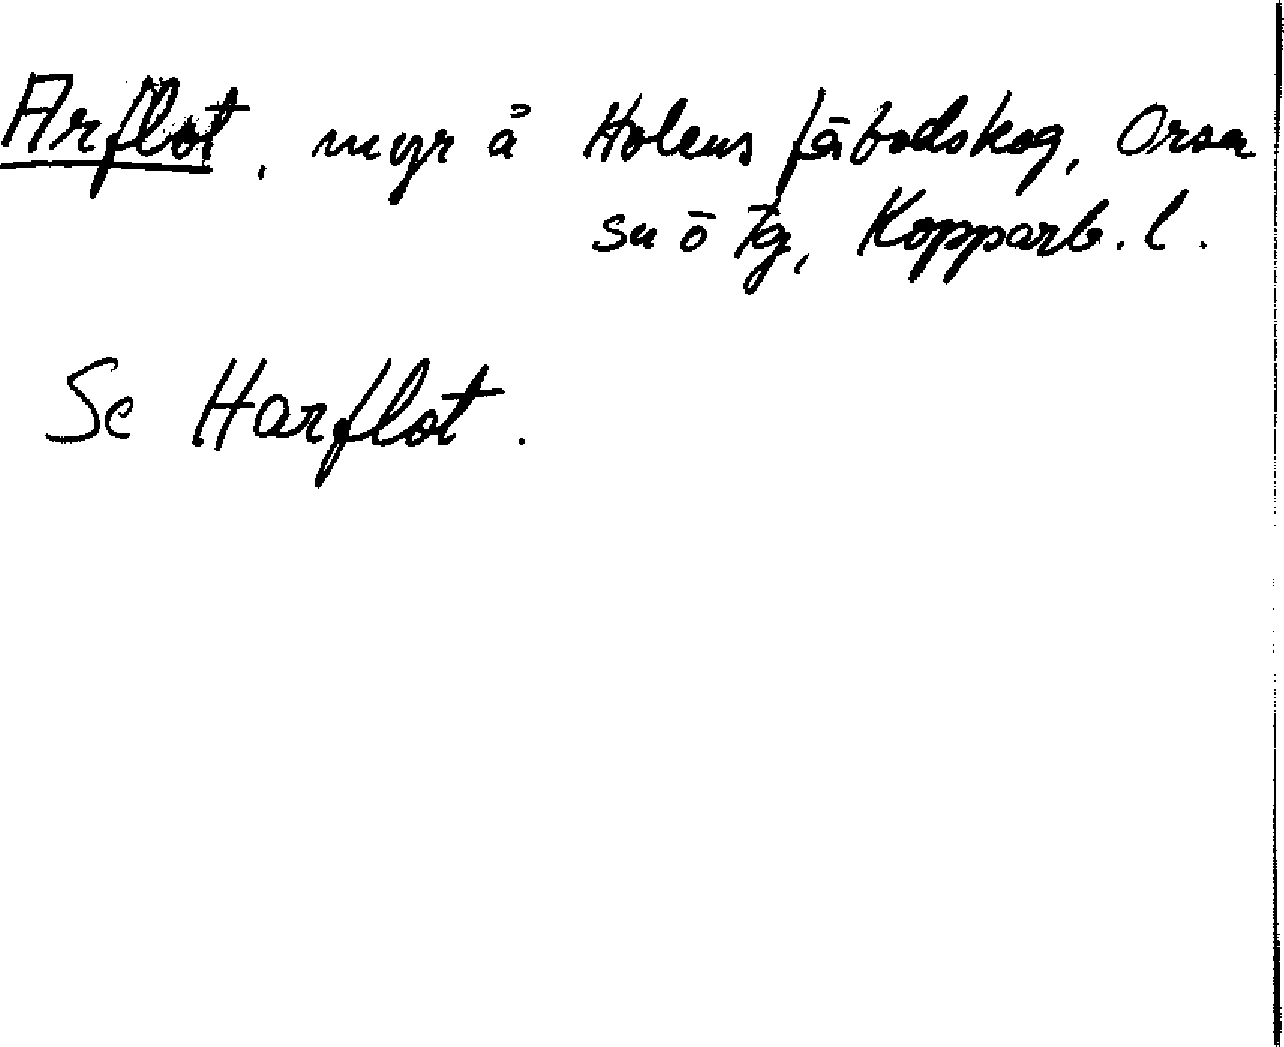 Arflot, myr å Holens fäbodskog, Orsa
sn ö tg, Kopparb. l.
Se Harflot.